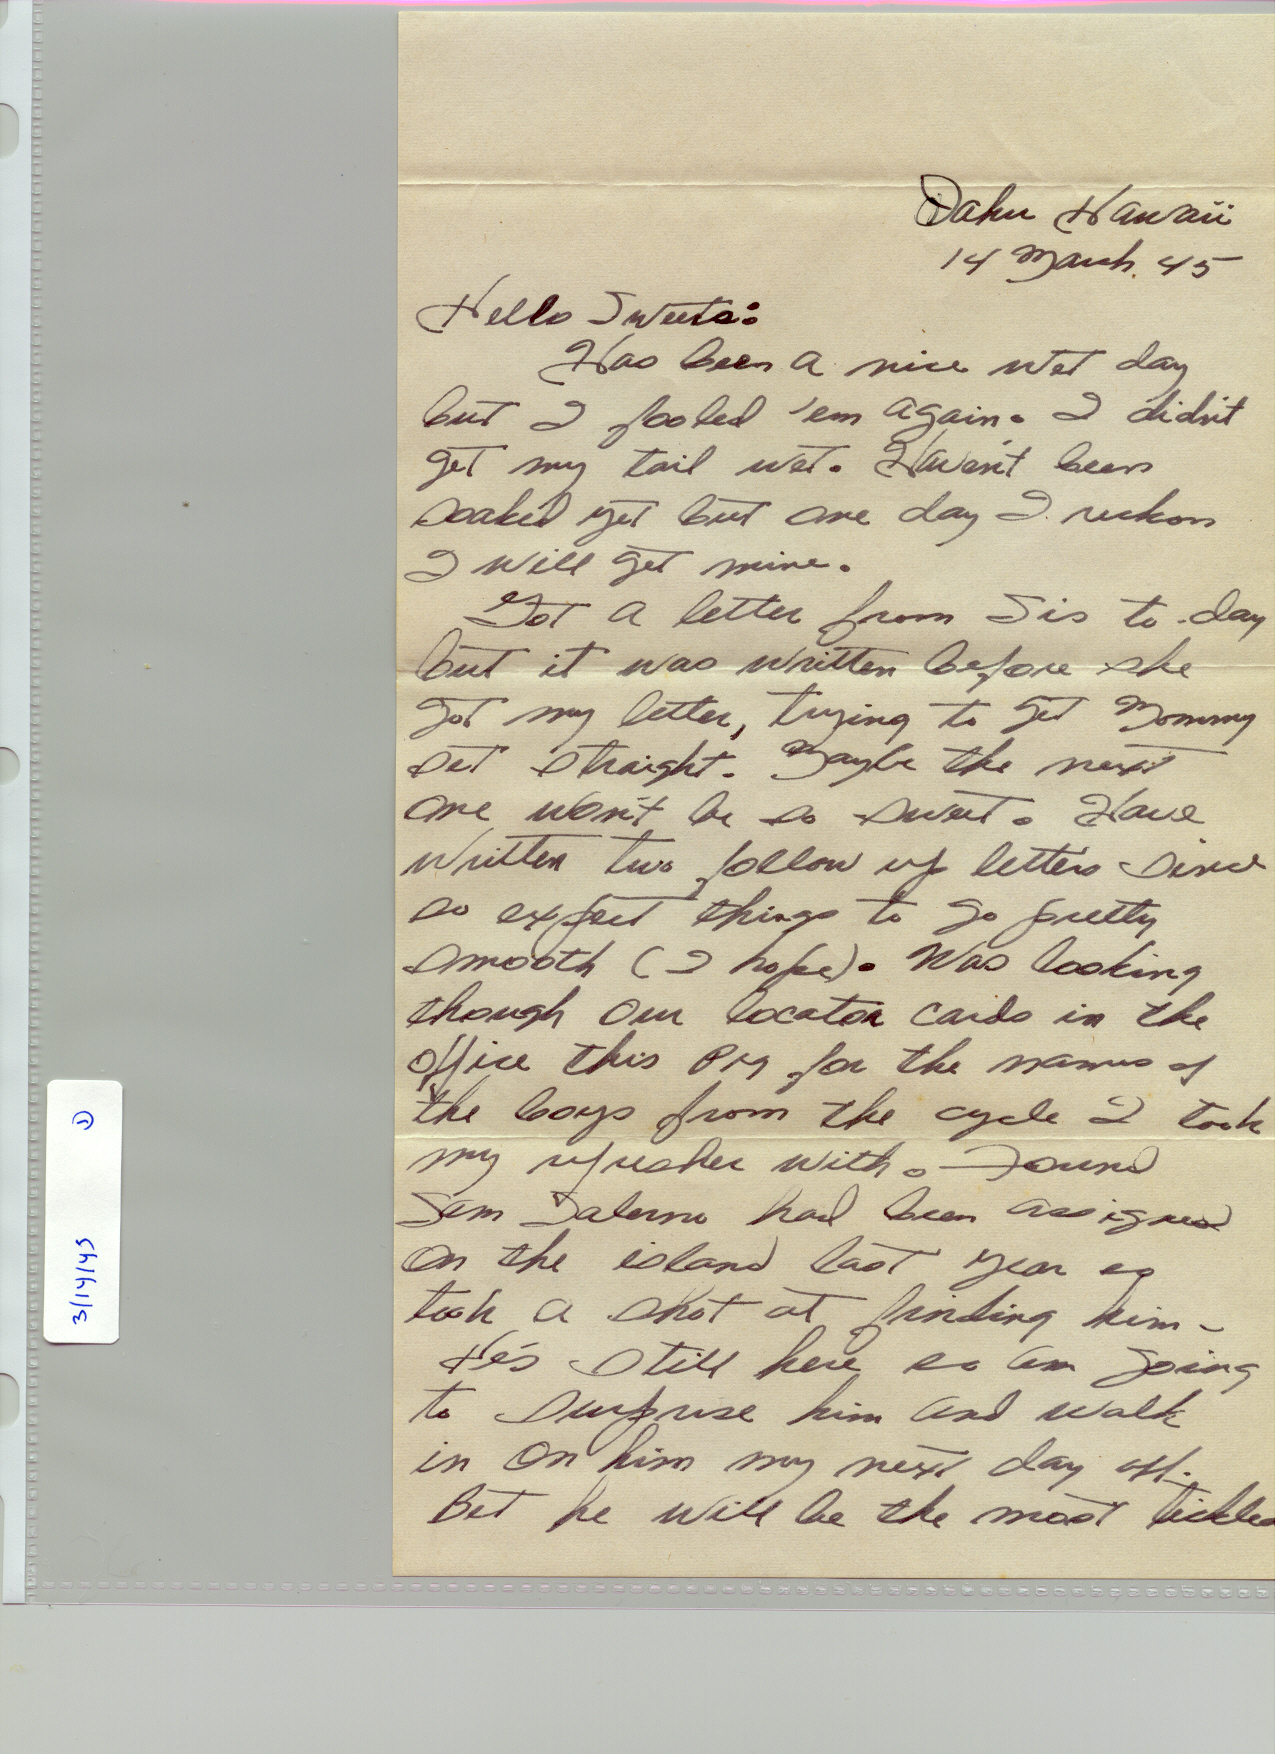 Oahu Hawaii
14 March. 45
Hello Sweets:
Has been a nice wet day
but I fooled 'em again. I didn't
get my tail wet. Haven't been
soaked yet but one day I reckon
I will get mine.
Got a letter from Sis to-day
but it was written before she
got my letter, trying to get Mommy
set straight. Maybe the next
one won't be so sweet. Have
written two follow up letters since
so expect things to go pretty
smooth (I hope). Was looking
though our locator cards in the
office this PM for the names of
the boys from the cycle I took
my refresher with. Found
Sam Salerno had been assigned
on the island last year so
took a shot at finding him -
He's still here so am going
to surprise him and walk
in on him my next day off.
Bet he will be the most tickled
3/14/45 1